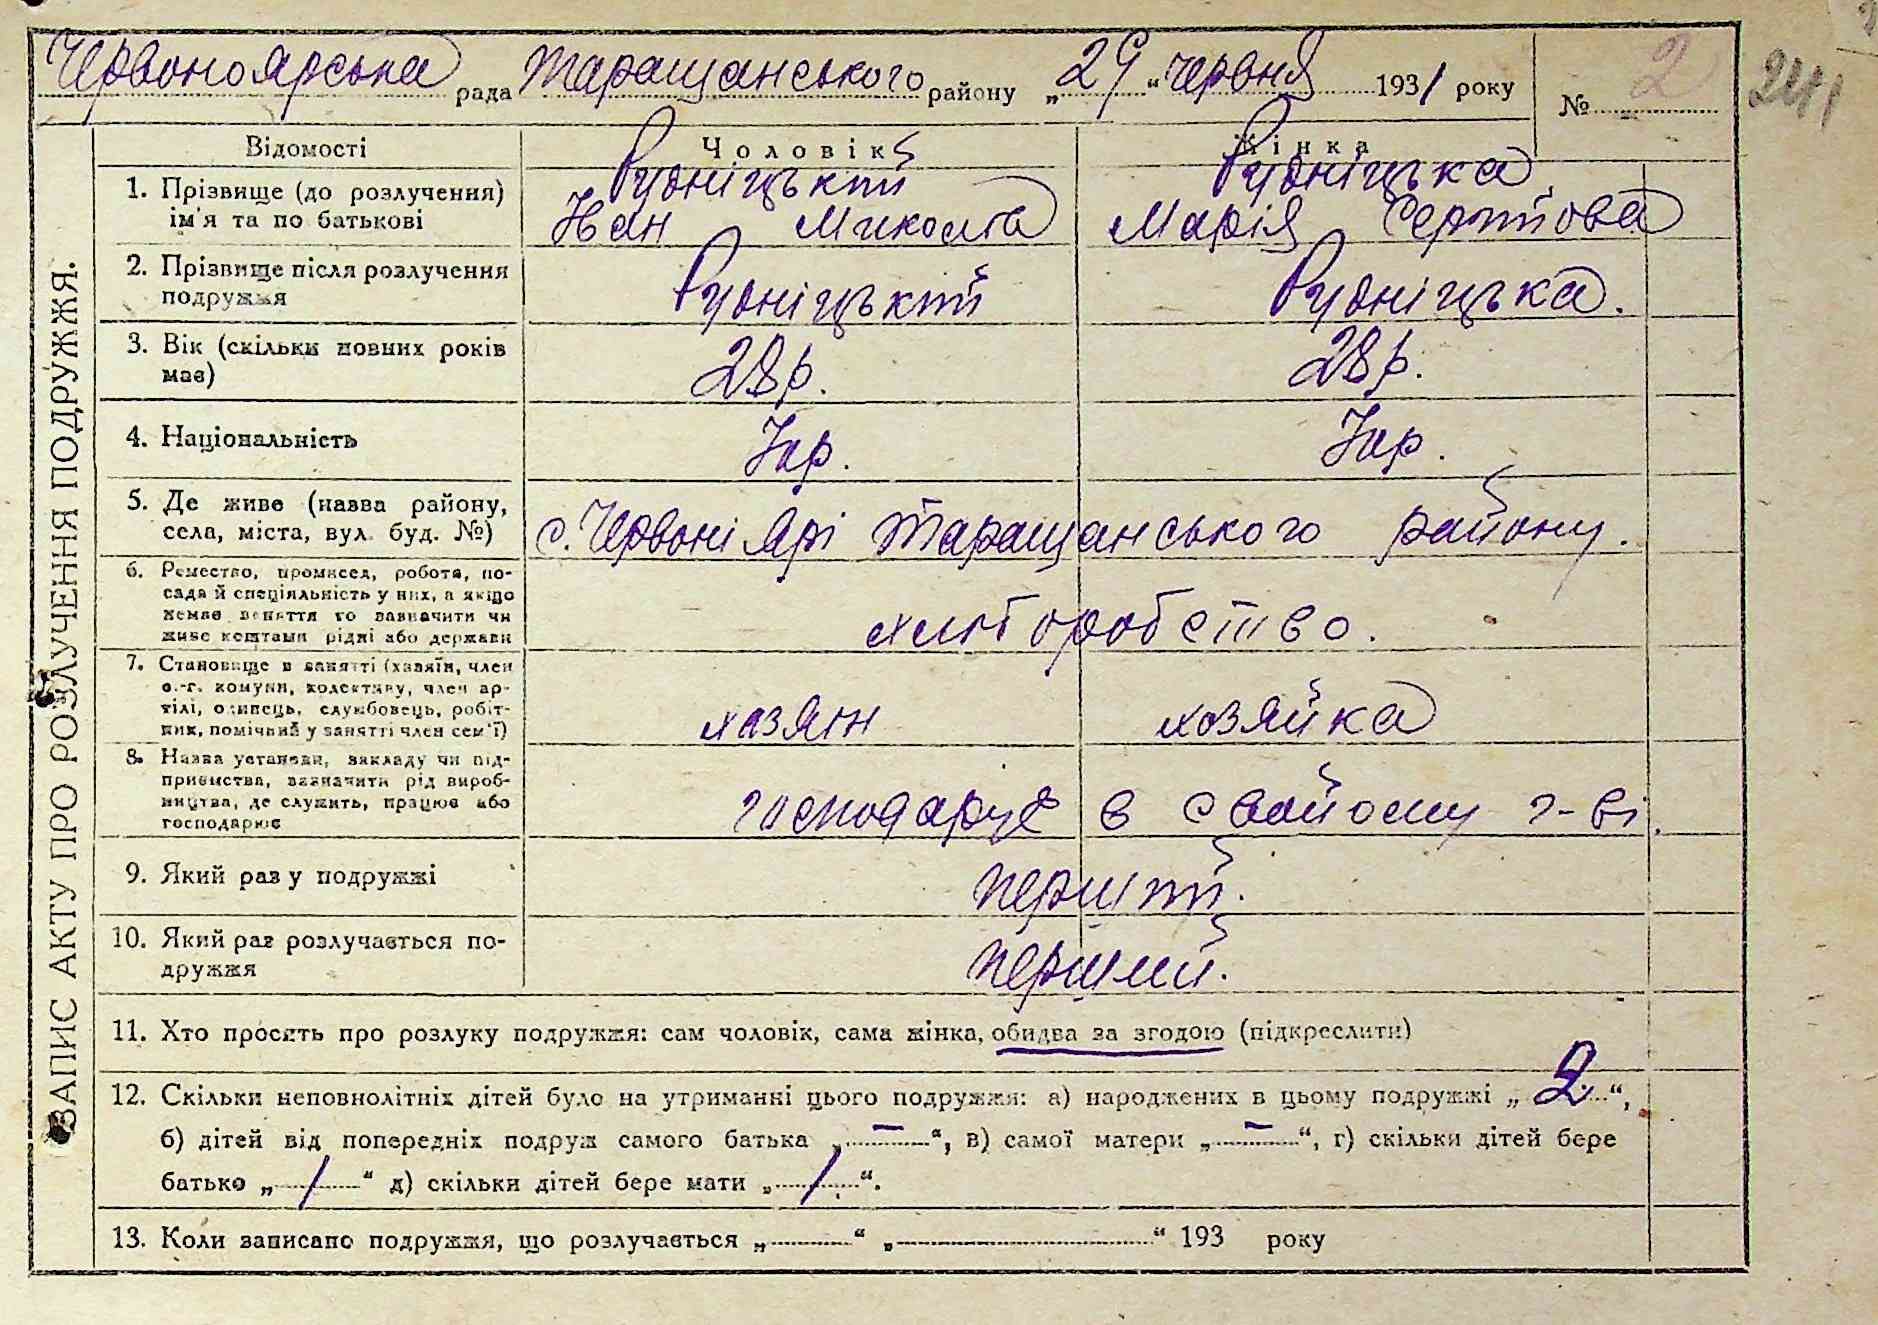 Червоноярська рада Таращанського району „29“ червня 1931 року № 2
241
ЗАПИС АКТУ ПРО РОЗЛУЧЕННЯ ПОДРУЖЖЯ.
Відомості Чоловік Жінка
1. Прізвище (до розлучення) Рудніцький Рудніцька
ім'я та по батькові Іван Микола Марія
2. Прізвище після розлучення
подружжя Рудніцький Рудніцька.
3. Вік (скільки повних років
має) 28 р. 28 р.
4. Національність Укр. Укр.
5. Де живе (назва району,
села, міста, вул. буд. №) с. Червоні Ярі Таращанського району.
6. Ремество, промисел, робота, по-
сада й спеціяльність у них, а якщо
немає заняття то зазначити чи
живе коштами рідні або держави хліборобство.
7. Становище в занятті (хазяїн, член
с.-г. комуни, колективу, член ар-
тілі, одинець, службовець, робіт-
ник, помічний у занятті член сем'ї) хазяїн хозяйка
8. Назва установи, закладу чи під-
приємства, зазначити рід вироб-
ництва, де служить, працює або
господарює господарує в свойому г-ві.
9. Який раз у подружжі перший.
10. Який раз розлучається по-
дружжя перший.
11. Хто просить про розлуку подружжя: сам чоловік, сама жінка, обидва за згодою (підкреслити)
12. Скільки неповнолітніх дітей було на утриманні цього подружжя: а) народжених в цьому подружжі „2“,
б) дітей від попередніх подруж самого батька „–“, в) самої матери „–“, г) скільки дітей бере
батько „1“ д) скільки дітей бере мати „1“.
13. Коли записано подружжя, що розлучається „“ „“ 193 року